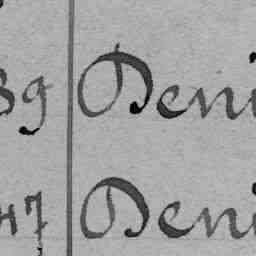 39 Deni
47 Deni